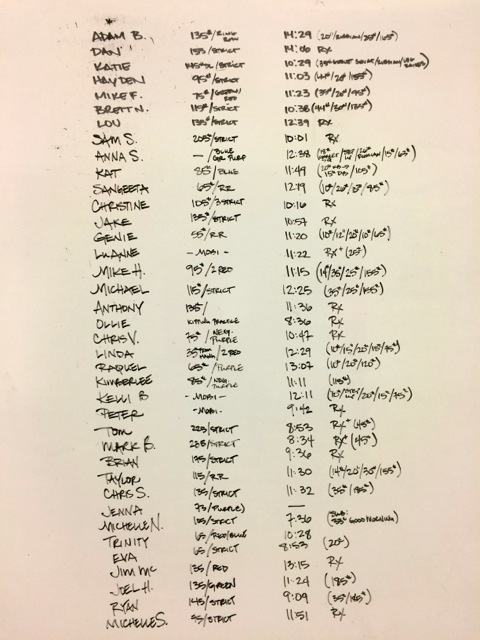 ADAM B. 135#/RING ROW 14:29 (20#/RUSSIAN/35#/165#)
DAN 155/STRICT 14:06 RX
KATIE 145#/STRICT 10:29
HAYDEN 95#/STRICT 11:03 (44#/26#/155#)
MIKE F. 75#/GREEN/RED 11:23 (35#/26#/95#)
BRETT N. 115#/STRICT 10:38 (44#/30#/135#)
LOU 135#/STRICT 12:39 RX
SAM S. 205#/STRICT 10:01 RX
ANNA S. —/BLUE OR PURP 12:38
KAT 85#/BLUE 11:49
SANGEETA 65#/RR 12:19
CHRISTINE 105#/3-STRICT 10:16 RX
JAKE 135#/STRICT 10:57 RX
GENIE 55#/RR 11:20 (10#/12#/20#/10#/65#)
LUANNE -MOBI- 11:22 RX+ (25#)
MIKE H. 95#/2 RED 11:15 (14#/35#/25#/155#)
MICHAEL 115#/STRICT 12:25 (35#/25#/155#)
ANTHONY 135/ 11:36 RX
OLLIE KIPPING PRACTICE 8:36 RX
CHRIS V. 75#/NEW PURPLE 10:47 RX
LINDA 35#/2 RED 12:29 (10#/15#/20#/15#/75#)
RAQUEL 65#/PURPLE 13:07 (10#/20#/120#)
KIMBERLEE 85#/NEW PURPLE 11:11 (115#)
KELLI B -MOBI- 12:11
PETER -MOBI- 9:42 RX
TOM 225/STRICT 8:53 RX+ (45#)
MARK B. 225/STRICT 8:34 RX+ (45#)
BRIAN 175/STRICT 9:36 RX
TAYLOR 115/RR 11:30 (14#/20#/30#/155#)
CHRIS S. 135/STRICT 11:32 (35#/185#)
JENNA 73/PURPLE —
MICHELLE N. 135/STRICT 7:36 (SUB: 55# GOOD MORNING)
TRINITY 65/RED/BLUE 10:28
EVA 65/STRICT 8:53 (20#)
JIM MC 135/RED 13:15 RX
JOEL H. 135/GREEN 11:24 (185#)
RYAN 145/STRICT 9:09 (35#/185#)
MICHELLE S. 55/STRICT 11:51 RX